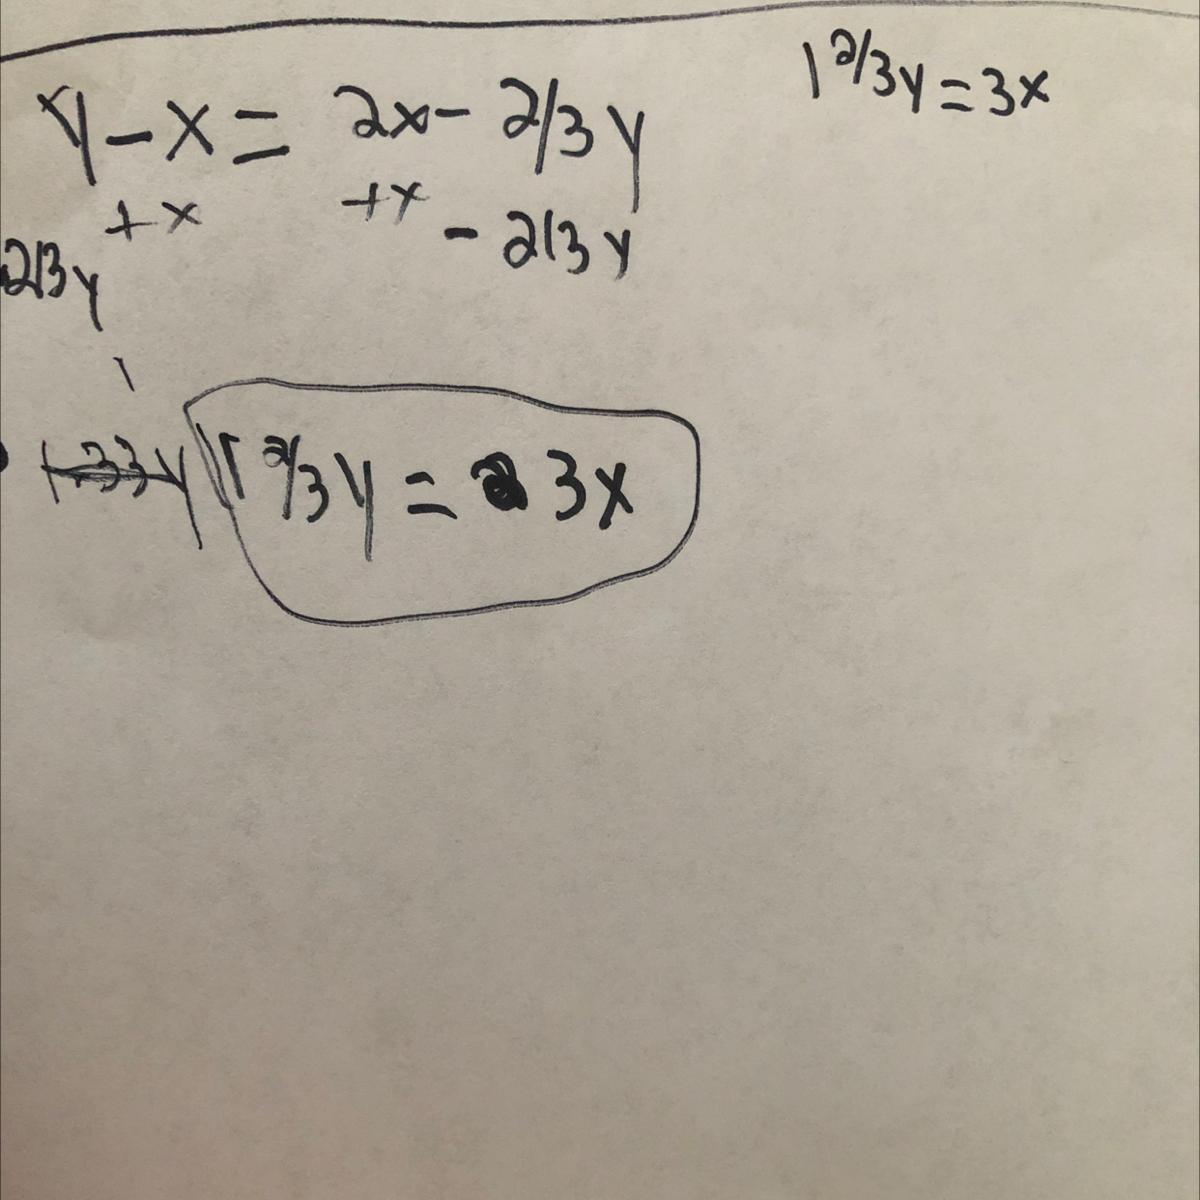 1 2/3y = 3x
y - x = 2x - 2/3y
+x +x - 2/3y
2/3y
1.33y 1 2/3y = 3x